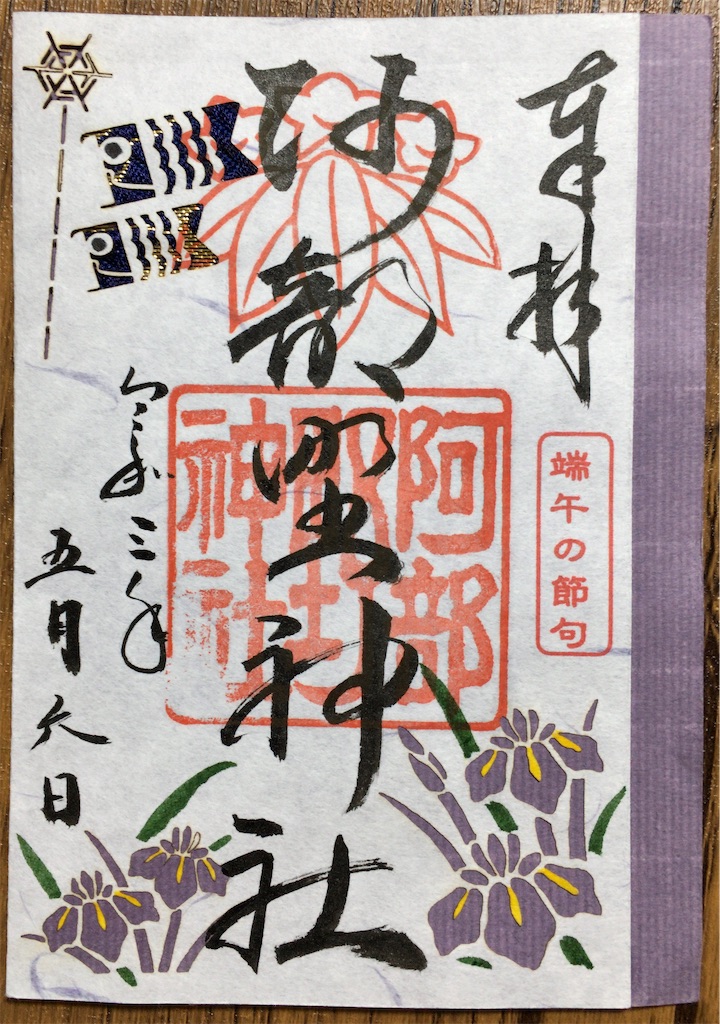 奉拝
端午の節句
阿部野神社
阿部野神社
令和三年
五月六日